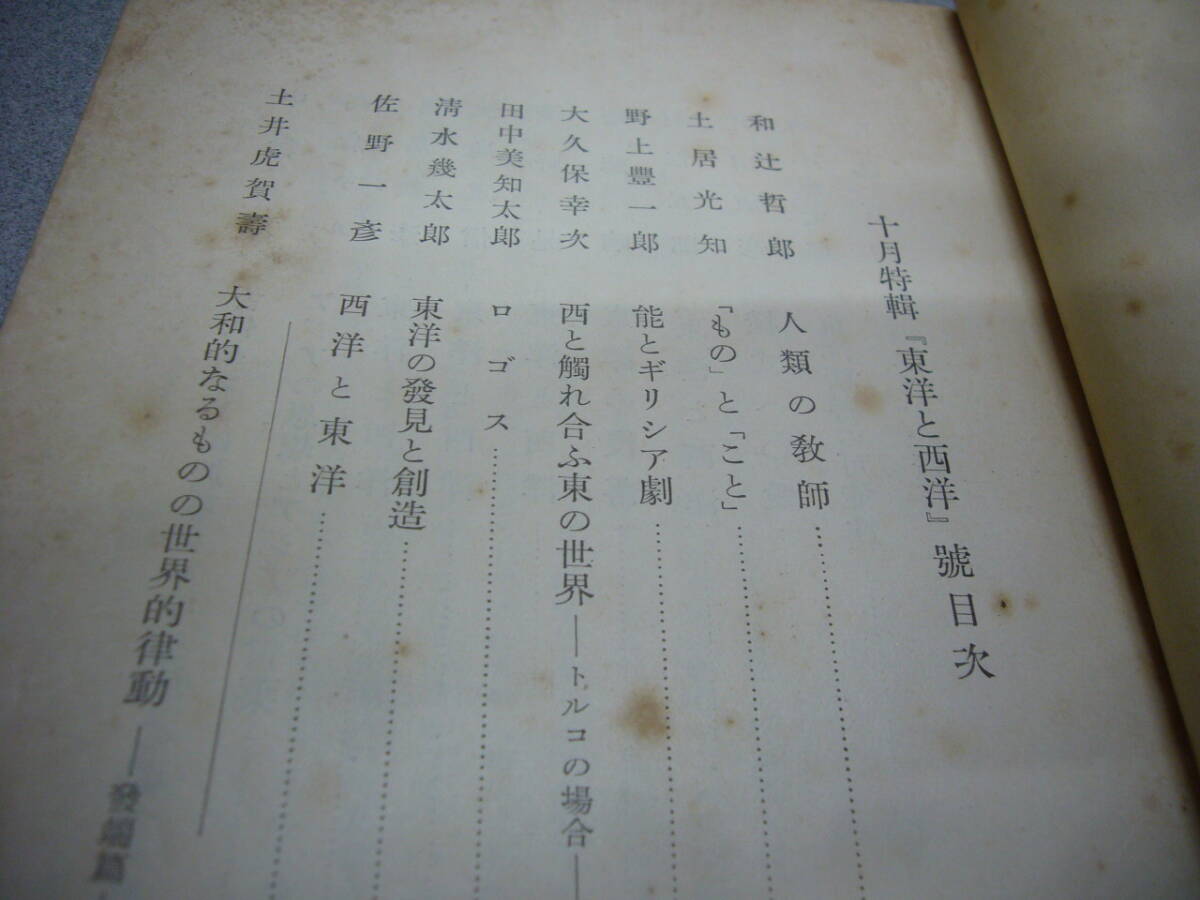 十月特輯『東洋と西洋』號目次
和辻哲郎 人類の教師
土居光知 「もの」と「こと」
野上豐一郎 能とギリシア劇
大久保幸次 西と觸れ合ふ東の世界―トルコの場合―
田中美知太郎 ロゴス
清水幾太郎 東洋の發見と創造
佐野一彥 西洋と東洋
土井虎賀壽 大和的なるものの世界的律動―發端篇